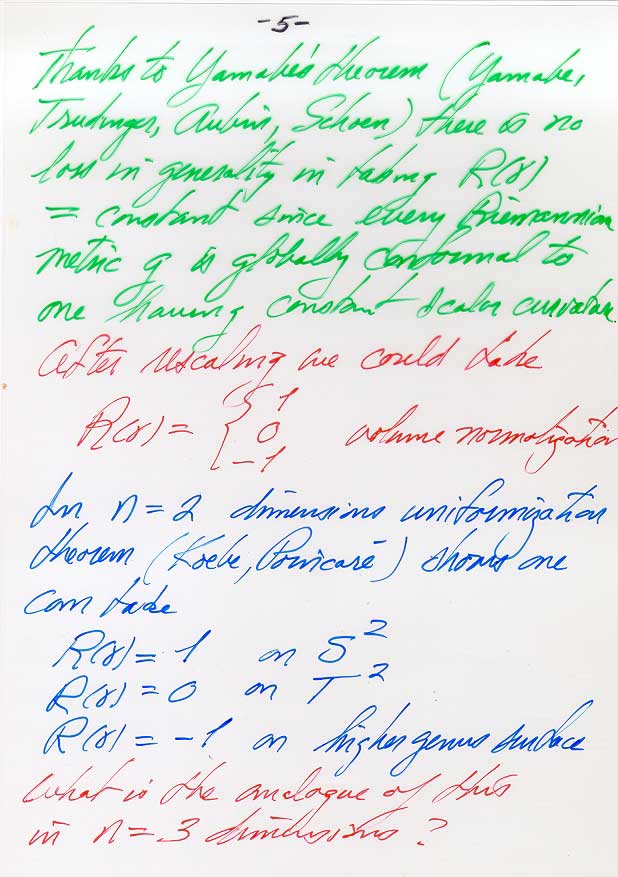 -5-
Thanks to Yamabe's theorem (Yamabe,
Trudinger, Aubin, Schoen) there is no
loss in generality in taking R(γ)
= constant since every Riemannian
metric g is globally conformal to
one having constant scalar curvature.
After rescaling we could take
R(γ) = { 1
0 volume normalization
-1
In n = 2 dimensions uniformization
theorem (Koebe, Poincaré) shows one
can take
R(γ) = 1 on S²
R(γ) = 0 on T²
R(γ) = -1 on higher genus surface
What is the analogue of this
in n = 3 dimensions?